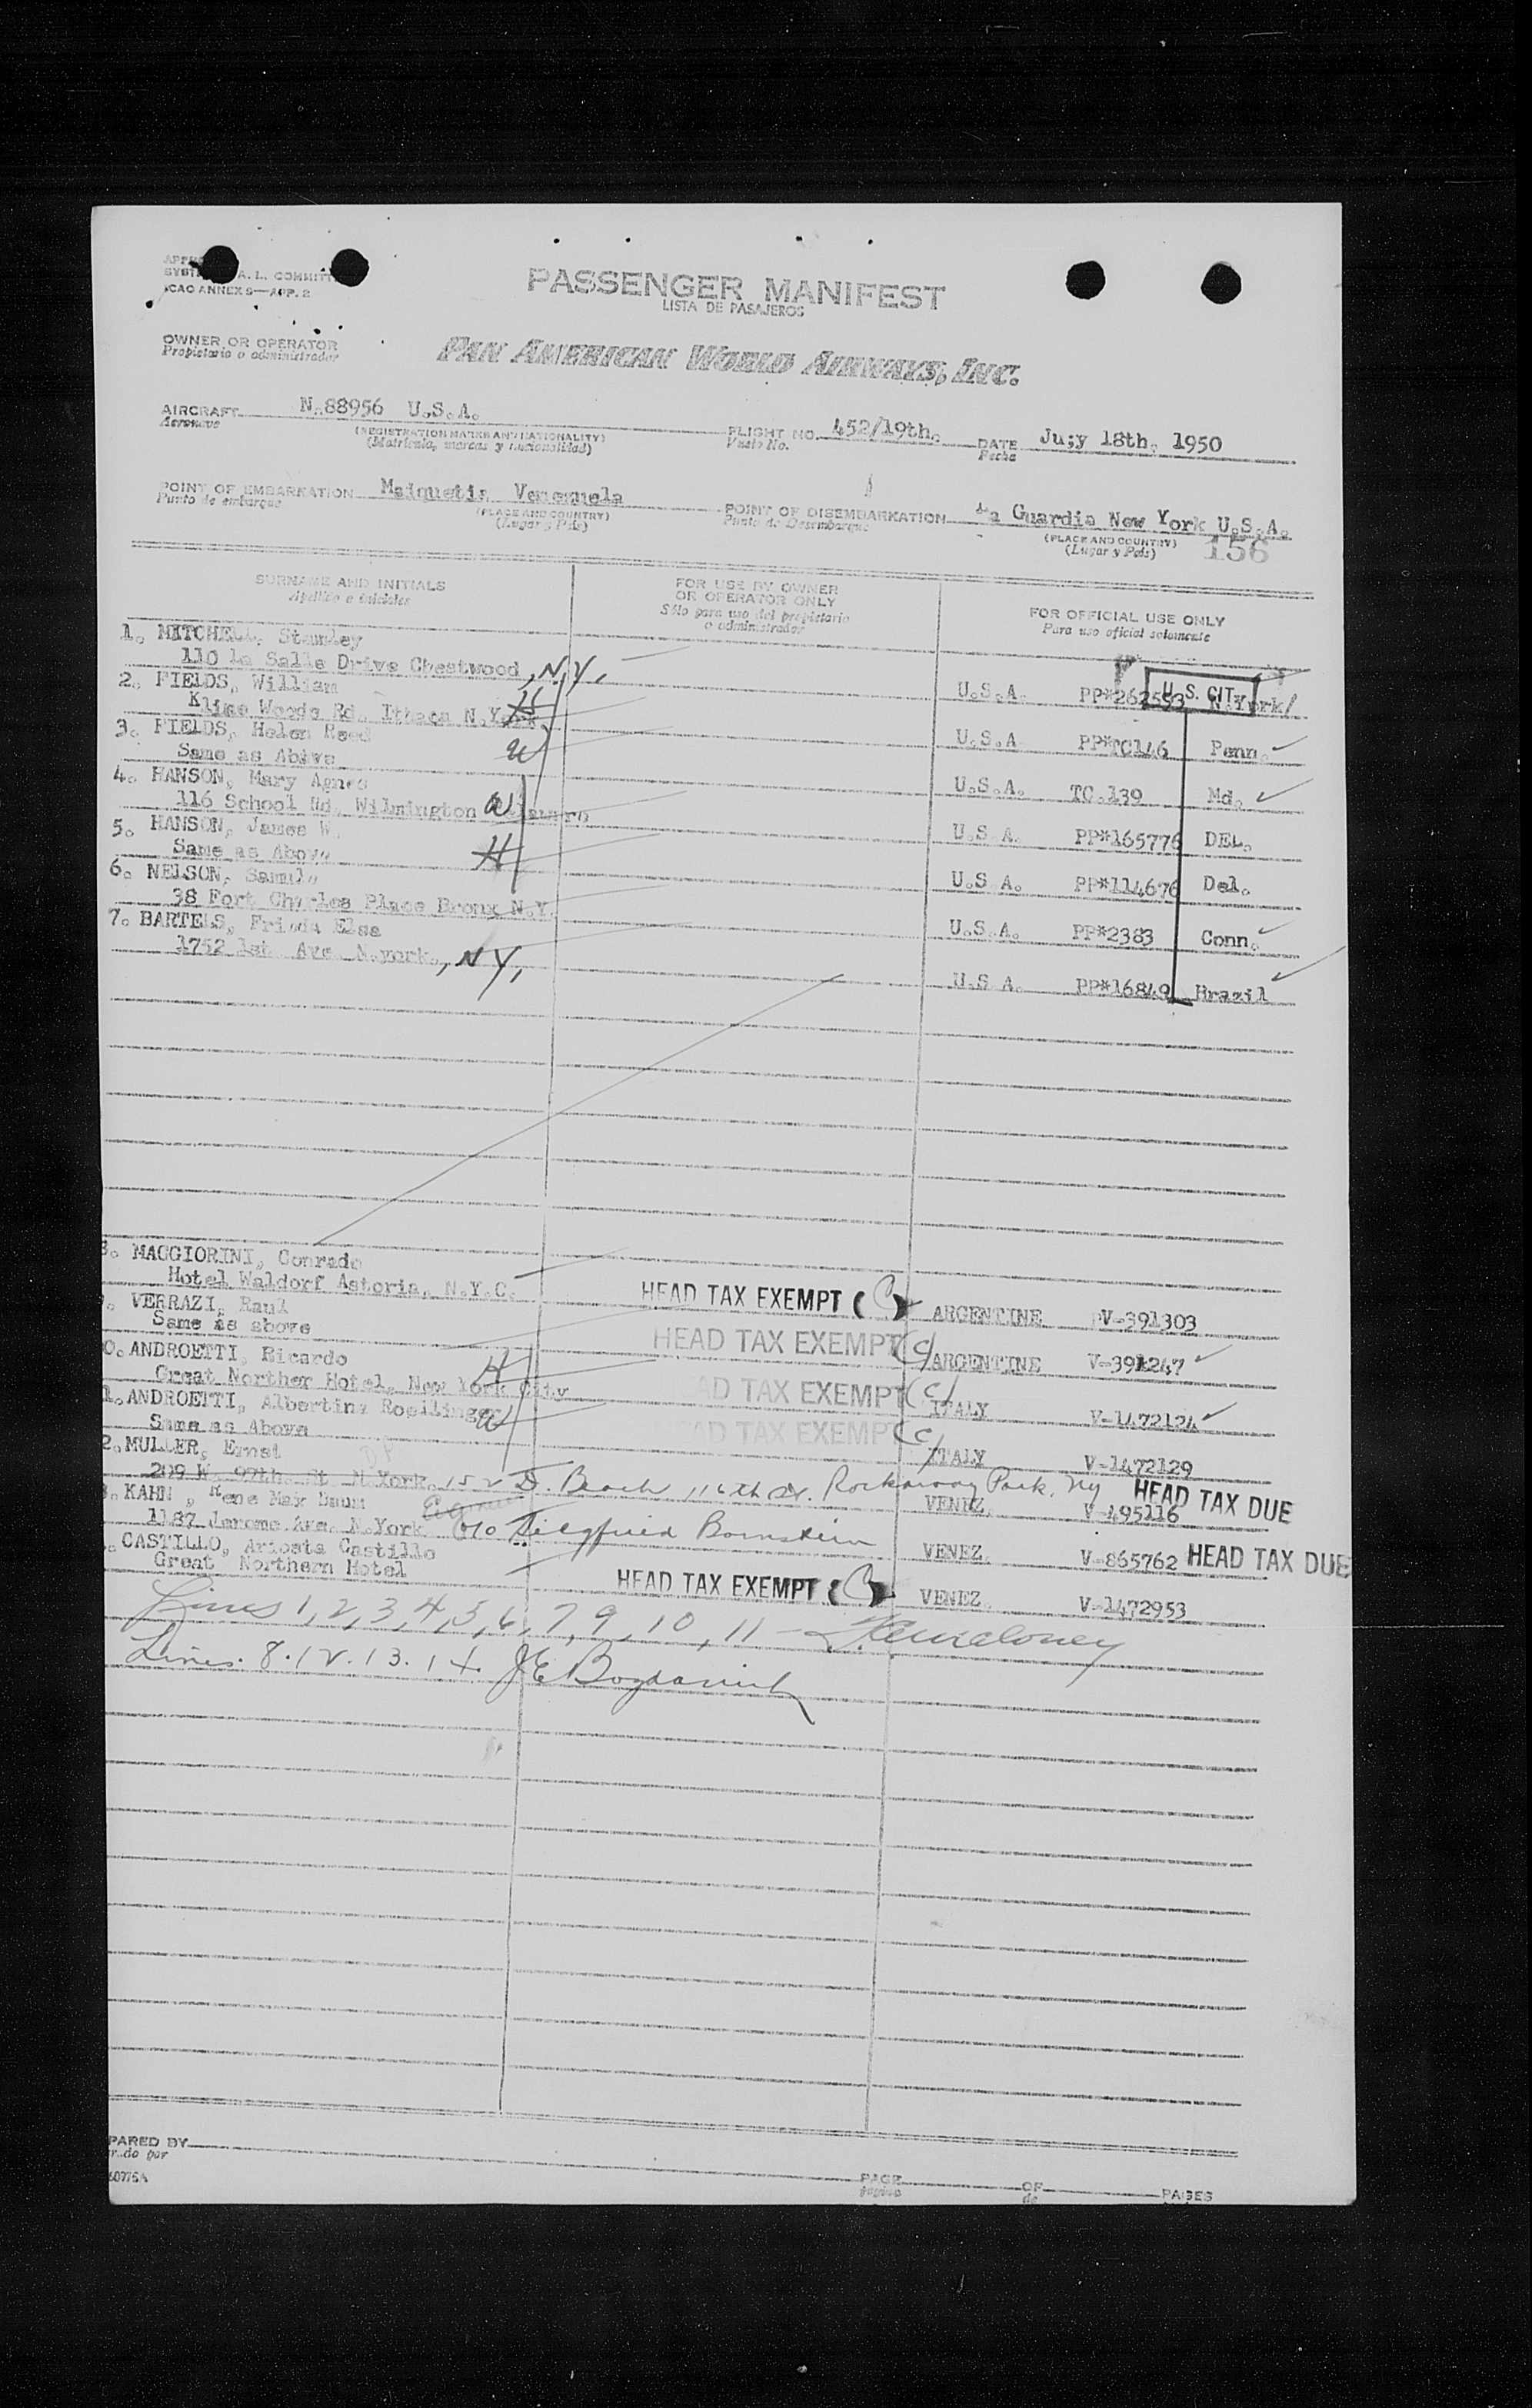 PASSENGER MANIFEST
LISTA DE PASAJEROS
ICAO ANNEX 9—APP. 2
OWNER OR OPERATOR
Propietario o administrador
PAN AMERICAN WORLD AIRWAYS, INC.
AIRCRAFT N.88956 U.S.A.
Aeronave
(REGISTRATION MARKS AND NATIONALITY)
(Matricula, marcas y nacionalidad)
FLIGHT NO. 452/19th.
Vuelo No.
DATE Ju;y 18th. 1950
Fecha
POINT OF EMBARKATION Maiquetia Venezuela
Punto de embarque
(PLACE AND COUNTRY)
(Lugar y Pais)
POINT OF DISEMBARKATION La Guardia New York U.S.A.
Punto de Desembarque
(PLACE AND COUNTRY)
(Lugar y Pais)
156
SURNAME AND INITIALS
Apellido e iniciales
FOR USE BY OWNER
OR OPERATOR ONLY
Sólo para uso del propietario
o administrador
FOR OFFICIAL USE ONLY
Para uso oficial solamente
1. MITCHELL, Stanley
110 La Salle Drive Chestwood, N.Y.
U.S.A. PP*262593 N.York
U.S. CIT.
2. FIELDS, William
Kline Woods Rd. Ithaca N.York. H
U.S.A PP*TC146 Penn.
3. FIELDS, Helen Reed
Same as Abive W
U.S.A. TC.139 Md.
4. HANSON, Mary Agnes
116 School Rd. Wilmington W
U.S.A. PP*165776 DEL.
5. HANSON, James W.
Same as Above H
U.S.A. PP*114676 Del.
6. NELSON, Samule
38 Fort Charles Place Bronx N.Y.
U.S.A. PP*2383 Conn.
7. BARTELS, Frieda Elsa
1752 1st. Ave. N.york., NY,
U.S.A. PP*16849 Brazil
8. MAGGIORINI, Conrado
Hotel Waldorf Astoria, N.Y.C.
HEAD TAX EXEMPT (C) ARGENTINE V-391303
. VERRAZI, Raul
Same as above
HEAD TAX EXEMPT (C) ARGENTINE V-391247
0. ANDROETTI, Ricardo
Great Norther Hotel, New York City H
AD TAX EXEMPT (C) ITALY V-1472124
1. ANDROETTI, Albertina W
Same as Above
AD TAX EXEMPT (C) ITALY V-1472129
2. MULLER, Ernst
209 W. 97th. St. N.York. 152 Beach 116th St. Rockaway Park, Ny
VENEZ. V-495116 HEAD TAX DUE
3. KAHN, Rene Max Daum
1187 Jerome Ave. N.York C/o Siegfried Bornstein
VENEZ. V-865762 HEAD TAX DUE
. CASTILLO, Ariosta Castillo
Great Northern Hotel
HEAD TAX EXEMPT (C) VENEZ. V-1472953
Lines 1, 2, 3, 4, 5, 6, 7, 9, 10, 11 -
Lines. 8. 12. 13. 14. JE Bogdanich
PARED BY
PAGE OF PAGES
de